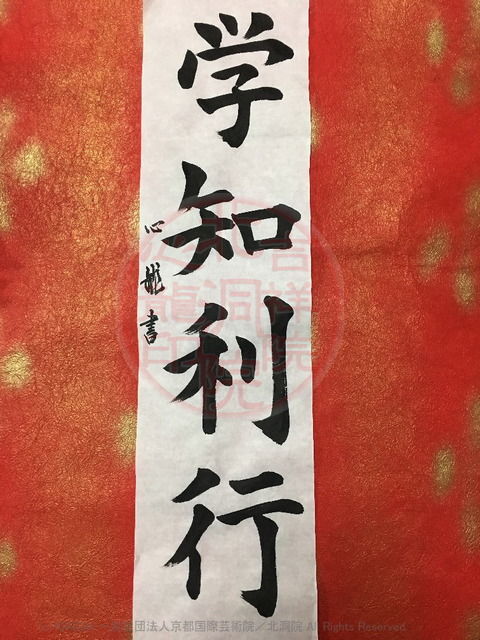 学知利行
心龍書
団法人京都国際芸術院／北洞院 All Rights Reserved.